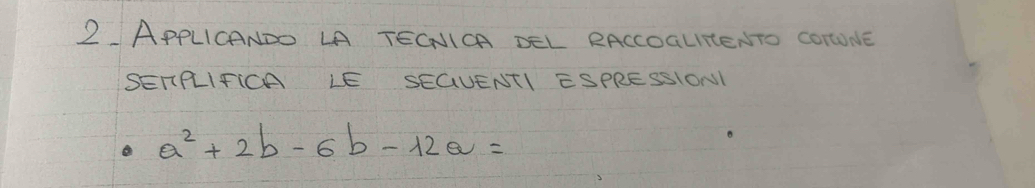 2_ APPLICANDO LA TECNICA DEL RACCOGLIMENTO COMUNE
SEMPLIFICA LE SEGUENTI ESPRESSIONI
• a² + 2b - 6b - 12a =